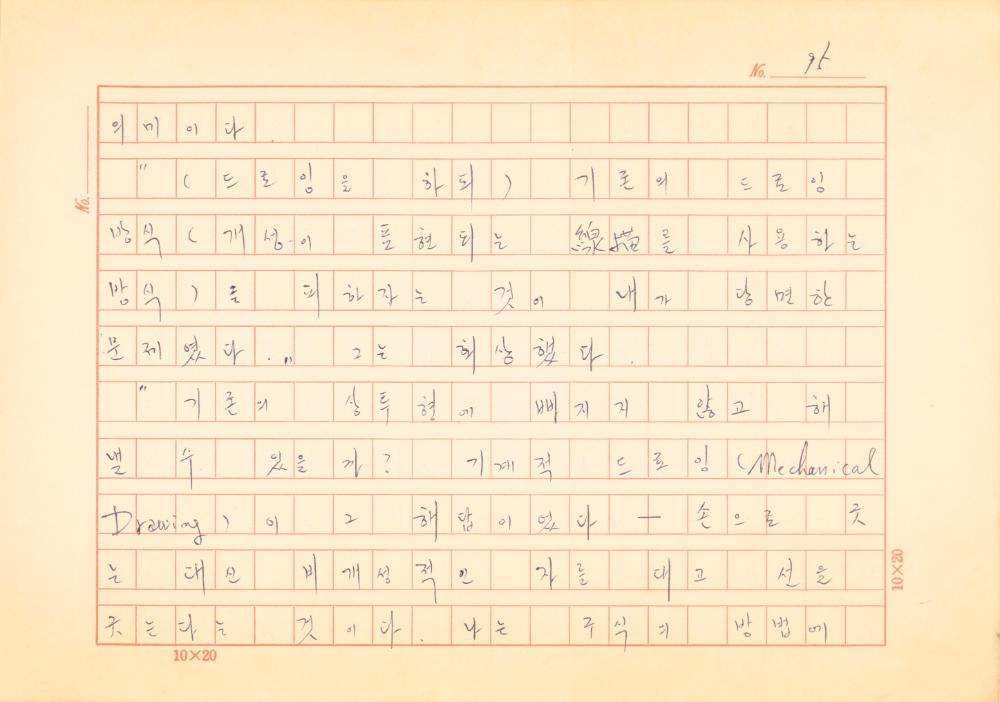 No. 95
의미이다.
"(드로잉을 하되) 기존의 드로잉
방식(개성이 표현되는 線描를 사용하는
방식)을 피하자는 것이 내가 당면한
문제였다." 그는 회상했다.
"기존의 상투현에 빠지지 않고 해
낼 수 있을까? 기계적 드로잉(Mechanical
Drawing)이 그 해답이었다 — 손으로 긋
는 대신 비개성적인 자를 대고 선을
긋는다는 것이다. 나는 구식의 방법에
No.
10×20
10×20